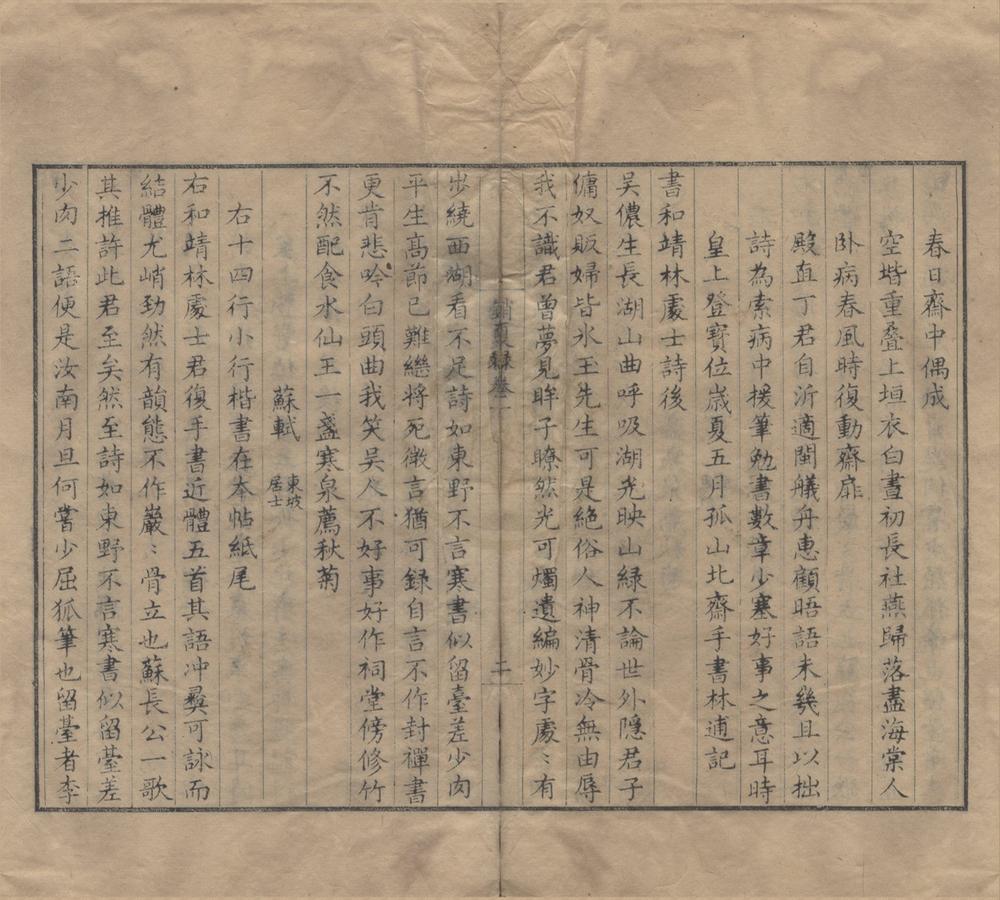 春日齋中偶成
空堦重叠上垣衣白晝初長社燕歸落盡海棠人
卧病春風時復動齋扉
殿直丁君自沂適閩艤舟惠顧晤語未幾且以拙
詩為索病中援筆勉書數章少塞好事之意耳時
皇上登寶位歲夏五月孤山北齋手書林逋記
書和靖林處士詩後
吳儂生長湖山曲呼吸湖光映山緑不論世外隱君子
傭奴販婦皆氷玉先生可是絶俗人神清骨冷無由辱
我不識君曾夢見眸子瞭然光可燭遺編妙字處〻有
銷夏録卷一
二
步繞西湖看不足詩如東野不言寒書似留臺差少肉
平生高節已難繼將死微言猶可録自言不作封禪書
更肯悲吟白頭曲我笑吳人不好事好作祠堂傍修竹
不然配食水仙王一盞寒泉薦秋菊
蘇軾 東坡居士
右十四行小行楷書在本帖紙尾
右和靖林處士君復手書近體五首其語冲彛可詠而
結體尤峭勁然有韻態不作巖〻骨立也蘇長公一歌
其推許此君至矣然至詩如東野不言寒書似留臺差
少肉二語便是汝南月旦何嘗少屈狐筆也留臺者李